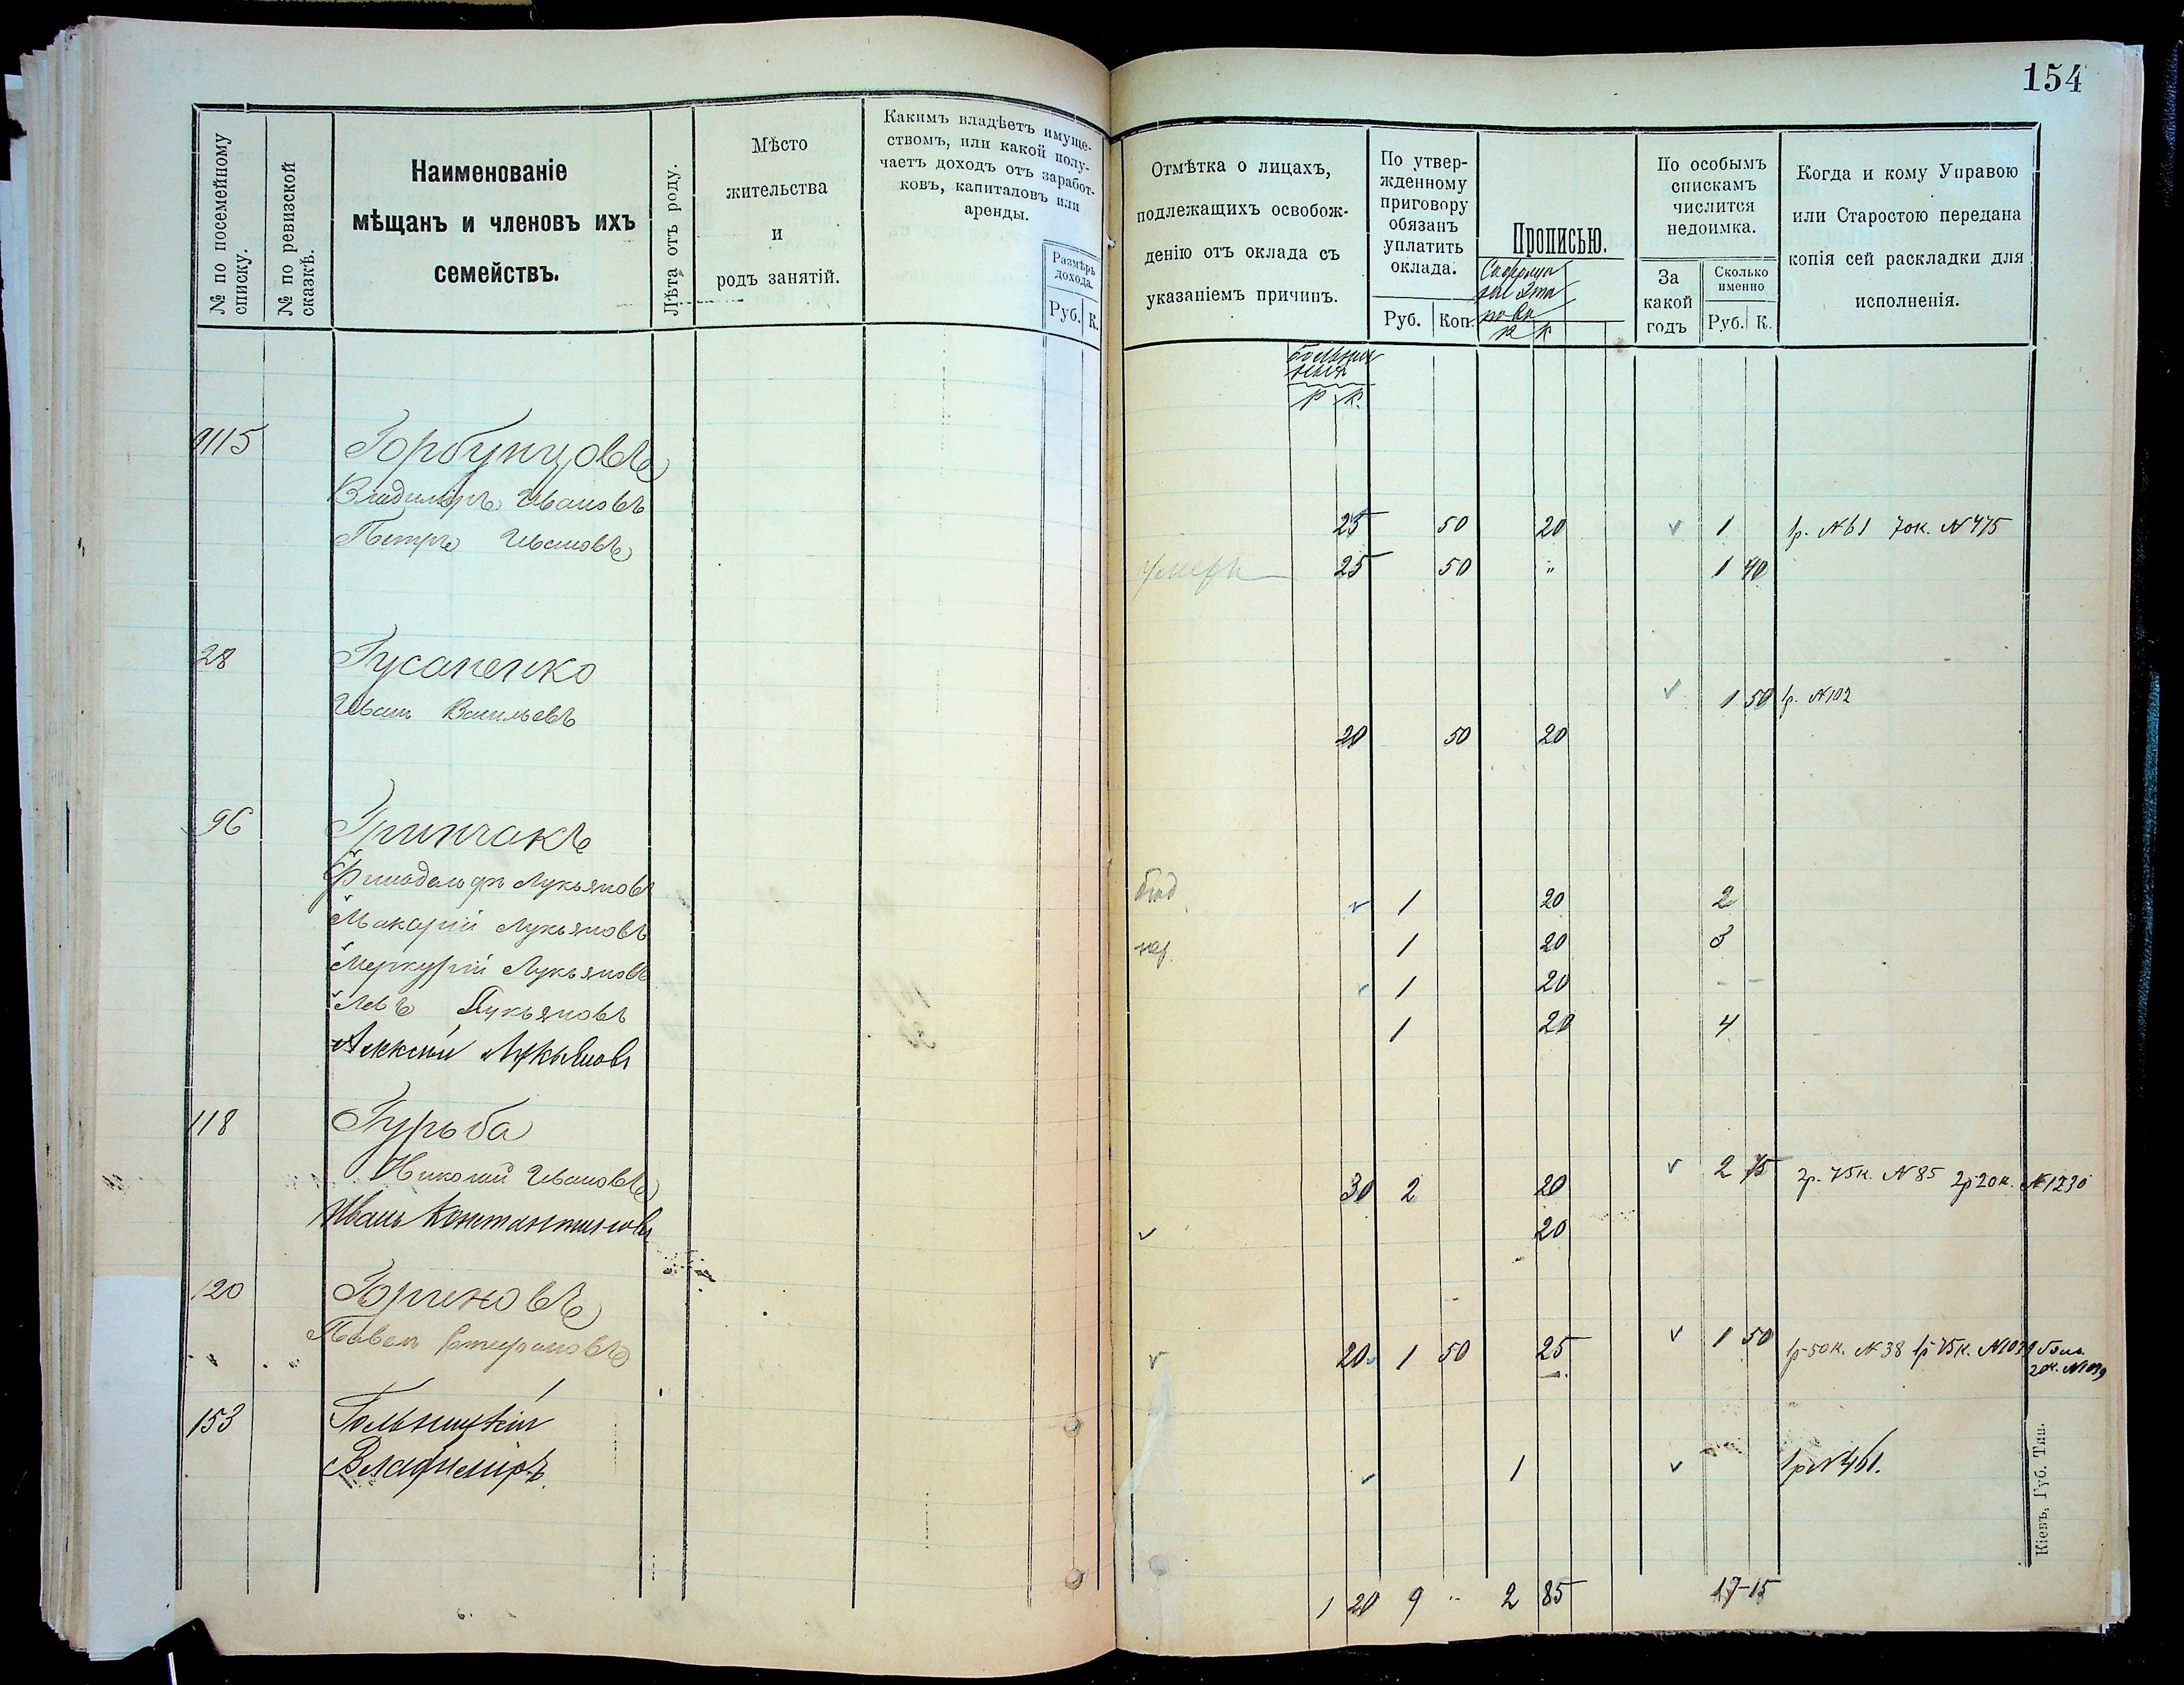 154
№ по посемейному
списку.
№ по ревизской
сказкѣ.
Наименованіе
мѣщанъ и членовъ ихъ
семействъ.
Лѣта отъ роду.
Мѣсто
жительства
и
родъ занятій.
Какимъ владѣетъ имуще-
ствомъ, или какой полу-
чаетъ доходъ отъ заработ-
ковъ, капиталовъ или
аренды.
Размѣръ
дохода.
Руб. К.
Отмѣтка о лицахъ,
подлежащихъ освобож-
денію отъ оклада съ
указаніемъ причинъ.
По утвер-
жденному
приговору
обязанъ
уплатить
оклада.
Руб. Коп.
Прописью.
Р К
По особымъ
спискамъ
числится
недоимка.
За
какой
годъ
Сколько
именно
Руб. К.
Когда и кому Управою
или Старостою передана
копія сей раскладки для
исполненія.
Р К.
9115 Горбунцовъ
Владиміръ Ивановъ 25 50 20 1 1р. №61 70к. №475
Петръ Ивановъ умеръ 25 50 " 1 40
28 Гусаненко
1 50 1р. №102
Иванъ Васильевъ
20 50 20
96 Гринчакъ
Филадельфъ Лукьяновъ 1 20 2
Макарій Лукьяновъ 1 20 3
Меркурій Лукьяновъ 1 20 - -
Левъ Лукьяновъ 1 20 4
Алексѣй Лукьяновъ
118 Гурьба
Николай Ивановъ 30 2 20 2 75 2р. 75к. №85 2р 20к. №1230
Иванъ Константиновъ 20
120 Гориновъ
Павелъ 20 1 50 25 1 50 1р 50к. №38 1р 75к.
153
Владиміръ 1 1р №461.
1 20 9 " 2 85 17-15
Кіевъ, Губ. Тип.